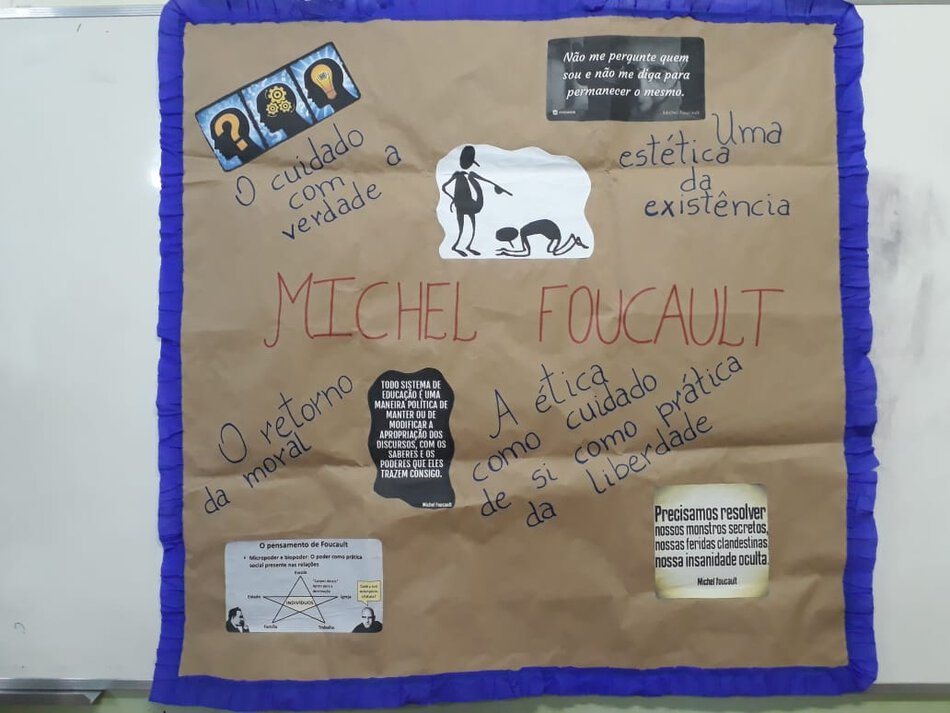 ?
Não me pergunte quem
sou e não me diga para
permanecer o mesmo.
Michel Foucault
O cuidado
com a
verdade
Uma
estética
da
existência
MICHEL FOUCAULT
O retorno
da moral
TODO SISTEMA DE
EDUCAÇÃO É UMA
MANEIRA POLÍTICA DE
MANTER OU DE
MODIFICAR A
APROPRIAÇÃO DOS
DISCURSOS, COM OS
SABERES E OS
PODERES QUE ELES
TRAZEM CONSIGO.
Michel Foucault
A ética
como cuidado
de si como prática
da liberdade
Precisamos resolver
nossos monstros secretos,
nossas feridas clandestinas,
nossa insanidade oculta.
Michel Foucault
O pensamento de Foucault
• Micropoder e biopoder: O poder como prática
social presente nas relações
Escola
Estado
Igreja
INDIVÍDUOS
Família
Trabalho